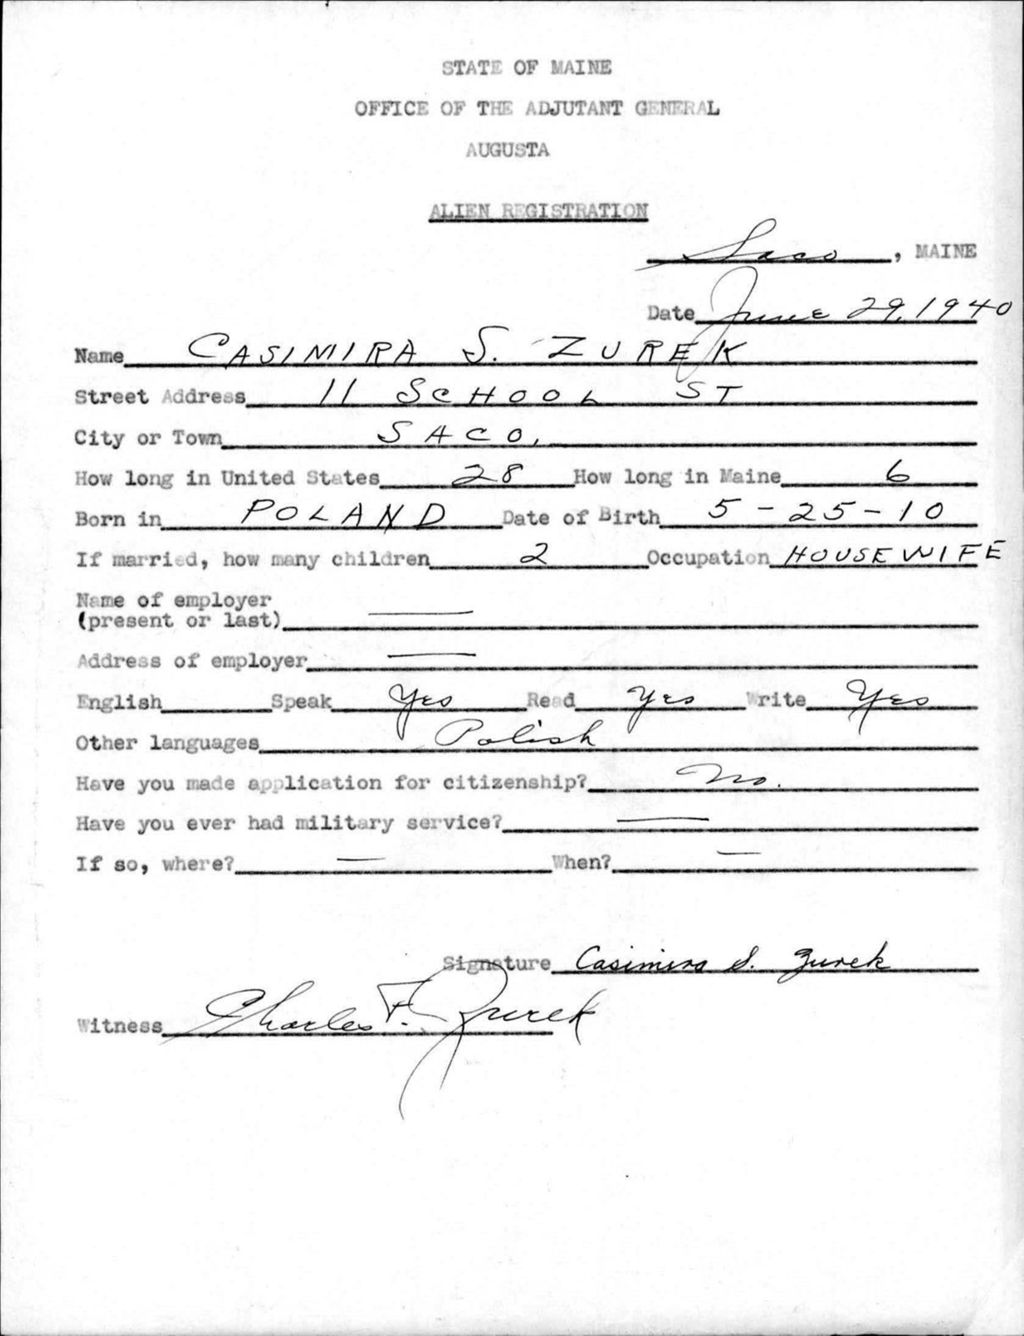 STATE OF MAINE
OFFICE OF THE ADJUTANT GENERAL
AUGUSTA
ALIEN REGISTRATION
Saco, MAINE
Date June 29, 1940
Name CASIMIRA S. ZUREK
Street Address 11 SCHOOL ST
City or Town SACO.
How long in United States 28 How long in Maine 6
Born in POLAND Date of Birth 5-25-10
If married, how many children 2 Occupation HOUSEWIFE
Name of employer
(present or last) —
Address of employer —
English Speak Yes Read Yes Write Yes
Other languages Polish
Have you made application for citizenship? No.
Have you ever had military service? —
If so, where? — When? —
Signature Casimira S. Zurek
Witness Charles F. Zurek